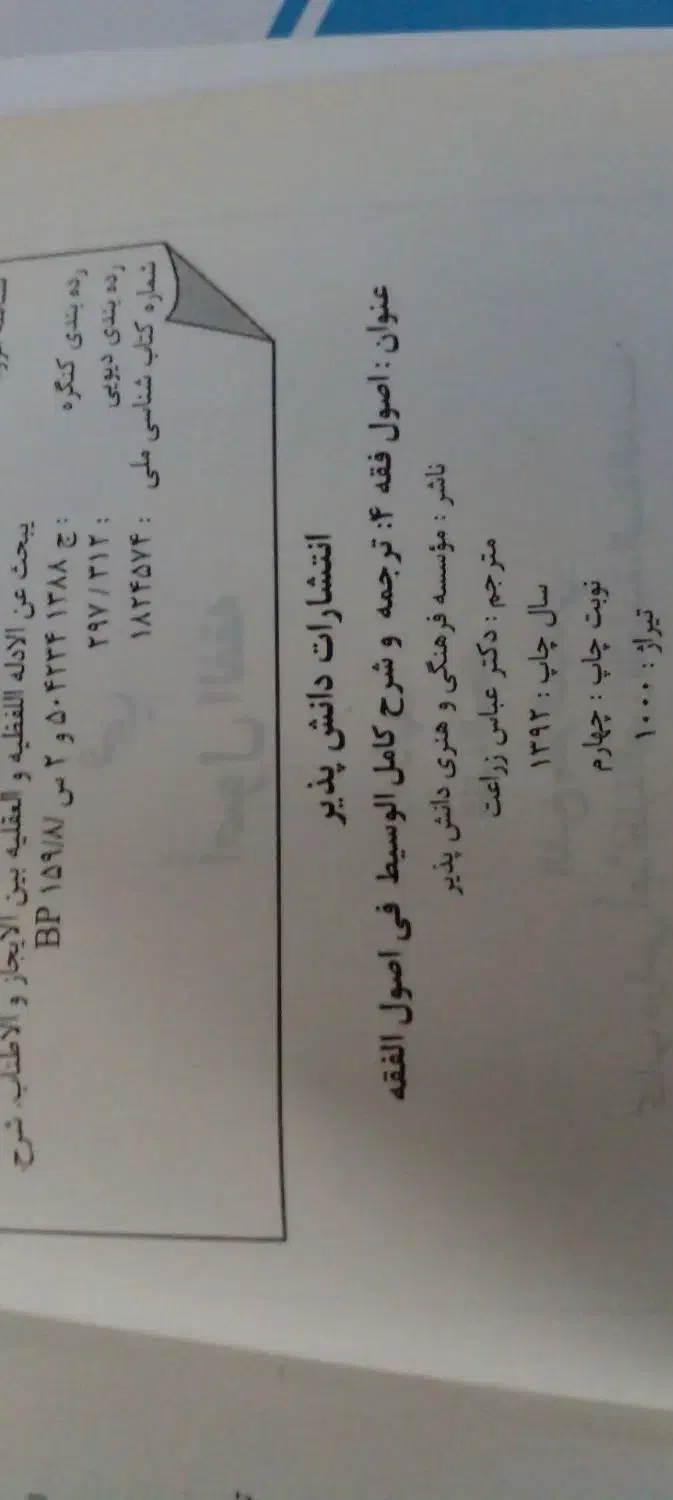 یبحث عن الادله اللفظیه و العقلیه بین الایجاز و الاطناب. شرح
رده بندی کنگره : BP ۱۵۹/۸/ ج ۱۳۸۸ ۵۰۴۲۳۴ و ۲ س
رده بندی دیویی : ۲۹۷/۳۱۲
شماره کتاب شناسی ملی : ۱۸۲۴۵۷۴
انتشارات دانش پذیر
عنوان : اصول فقه ۴: ترجمه و شرح کامل الوسیط فی اصول الفقه
ناشر : مؤسسه فرهنگی و هنری دانش پذیر
مترجم : دکتر عباس زراعت
سال چاپ : ۱۳۹۲
نوبت چاپ : چهارم
تیراژ : ۱۰۰۰